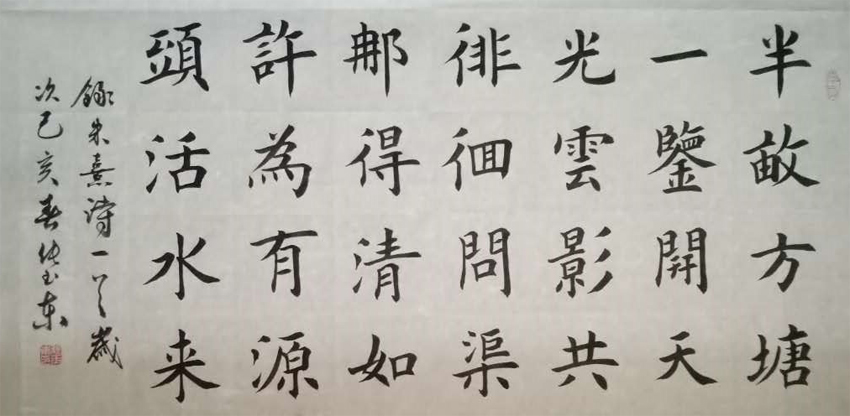 半畝方塘
一鑒開天
光雲影共
徘徊問渠
那得清如
許為有源
頭活水来
錄朱熹詩一首歲
次己亥春